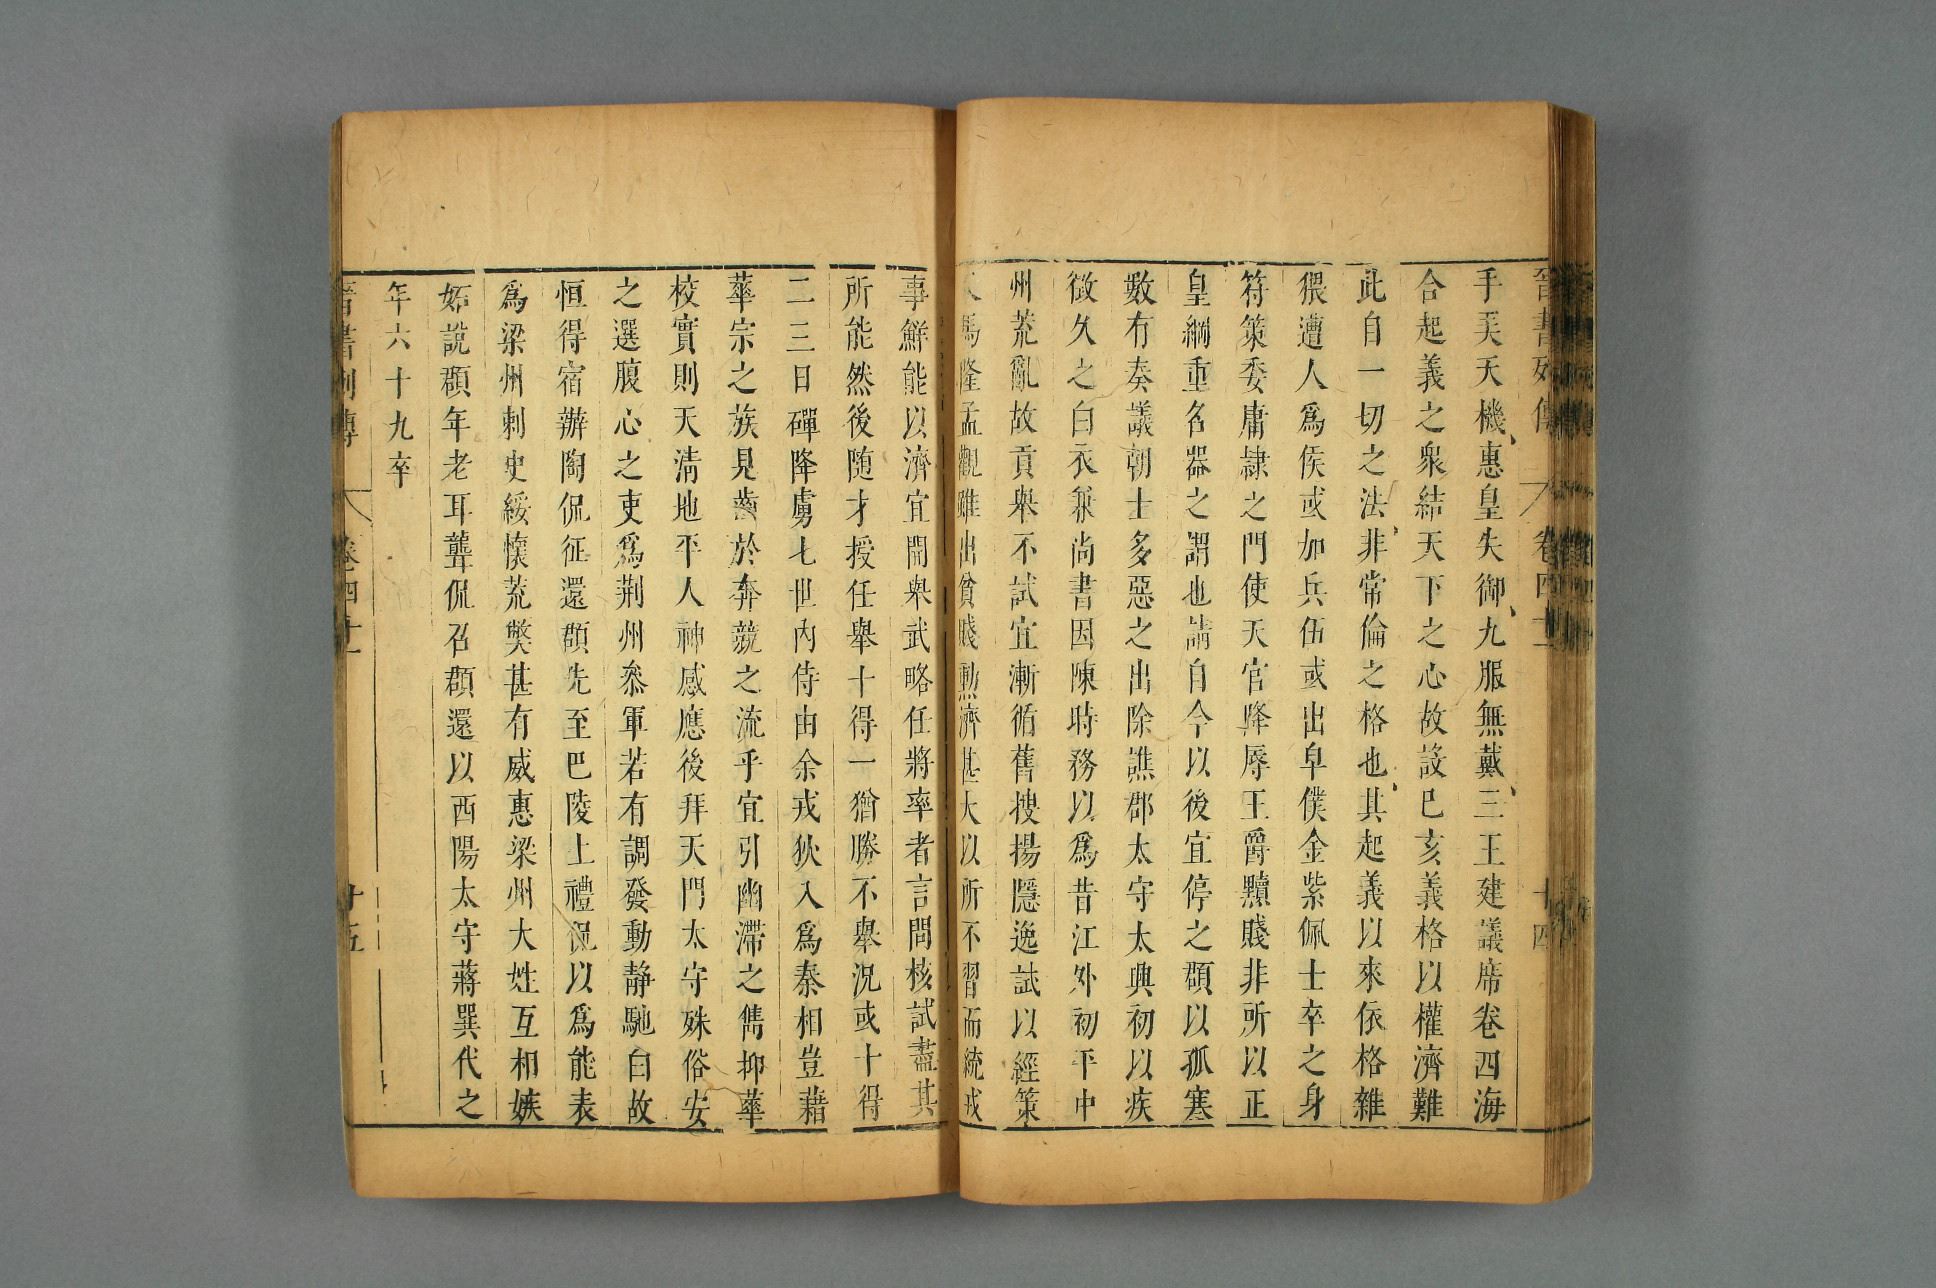 晉書列傳 卷四十一 十四
手美天機惠皇失御九服無戴三王建議席卷四海
合起義之衆結天下之心故設巳亥義格以權濟難
此自一切之法非常倫之格也其起義以來依格雜
猥遭人爲侯或加兵伍或出皁僕金紫佩士卒之身
符策委庸隷之門使天官降辱王爵黷賤非所以正
皇綱重名器之謂也請自今以後宜停之頵以孤寒
數有奏議朝士多惡之出除譙郡太守太興初以疾
徵久之白衣兼尚書因陳時務以爲昔江外初平中
州荒亂故貢舉不試宜漸循舊搜揚隱逸試以經策
又馬隆孟觀雖出貧賤勲濟甚大以所不習而統戎
事鮮能以濟宜開舉武略任將率者言問核試盡其
所能然後随才授任舉十得一猶勝不舉況或十得
二三日磾降虜七世內侍由余戎狄入爲秦相豈藉
華宗之族見齒於奔競之流乎宜引幽滯之雋抑華
校實則天清地平人神感應後拜天門太守殊俗安
之選腹心之吏爲荆州叅軍若有調發動静馳白故
恒得宿辦陶侃征還頵先至巴陵上禮侃以爲能表
爲梁州刺史綏懷荒獘甚有威惠梁州大姓互相嫉
妬說頵年老耳聾侃召頵還以西陽太守蔣巽代之
年六十九卒
晉書列傳 卷四十一 十五